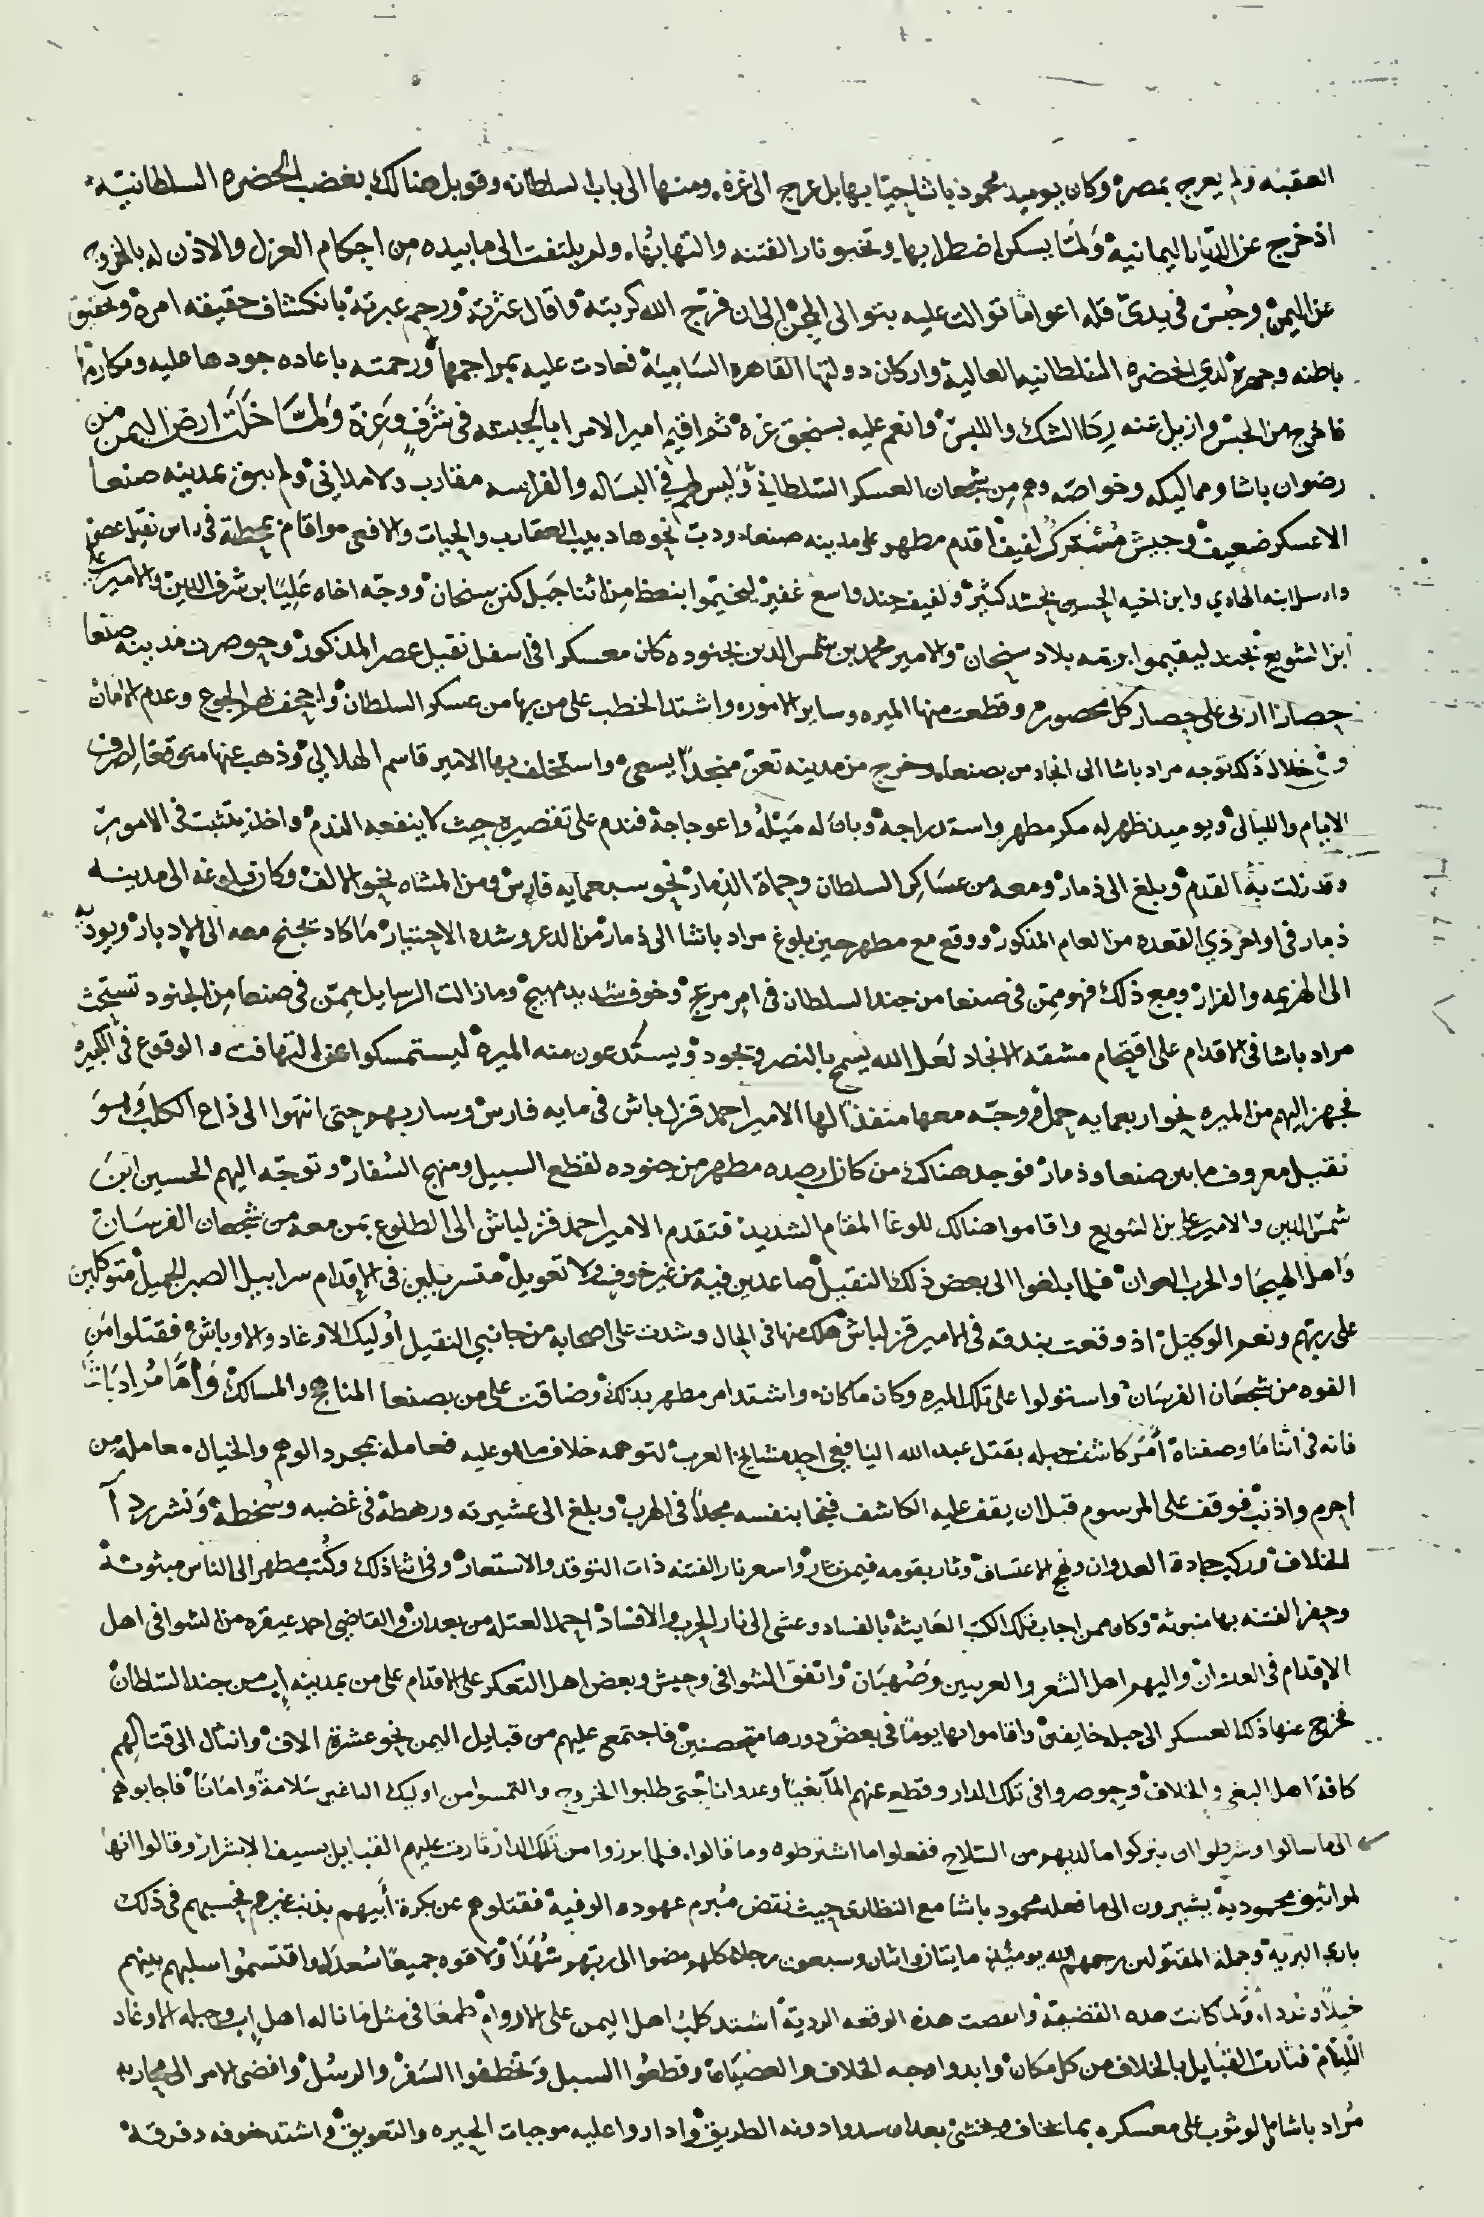 العقبه ولم يعرج بمصر وكان يوميد محمود باشا حيا بها بل عرج الى غزه ومنها الى باب السلطان وقوبل هنالك بغضب الحضره السلطانيه
اذ خرج عن الديار اليمانية ولما يسكن اضطرابها وتخبو نار الفتنه والتهابها ولم يلتفت الى ما بيده من احكام العزل والاذن له بالخروج
عن اليمن وحبس في يدي قله اعواما توالت عليه بتوالى المحن الى ان فرج الله كربته واقال عثرته ورحم عبرته بانكشاف حقيقه امره وتحقيق
باطنه وجهره لدي الحضره السلطانيه العالية واركان دولتها القاهره السامية فعادت عليه بمراحمها ورحمته باعاده جودها عليه ومكارمها
فاخرج من الحبس وازيل عنه رجا الشك واللبس وانعم عليه بسنجق غزه ثم اقيم امير الامرا بالحبشه في شرف وعزة ولما خلت ارض اليمن من
رضوان باشا ومماليكه وخواصه وهم من شجعان العسكر السلطاني وليس لهم في البساله والفراسه مقارب ولا مداني ولم يبق بمدينه صنعا
الا عسكر ضعيف وجيش لفيف اقدم مطهر على مدينه صنعا ودب نحوها دبيب العقارب والحيات والافعى مواقام بمحطة في راس نقيل عصر
وارسل ابنه الهادي وابن اخيه الحسين بحشد كثير ولفيف جند واسع غفير ليخيموا من اثنا جبل كنن بسنحان ووجه اخاه عليا بن شرف الدين والامير علي
ابن الشويع بجند ليقيموا ببلاد سنحان والامير محمد بن شمس الدين بجنوده كان معسكرا في اسفل نقيل عصر المذكور وحوصرت مدينه صنعا
حصارا اربى على حصار كل محصور وقطعت منها الميره وساير الامور واشتد الخطب على من بها من عسكر السلطان واجحف بهم الجوع وعدم الامان
وفي خلال ذلك توجه مراد باشا الى انجاد من بصنعا وخرج من مدينه تعز منجدا يسعى واستخلف بها الامير قاسم الهلالي وذهب عنها متوقعا لصروف
الايام والليالي ويوميد ظهر له مكر مطهر واستدراجه وبان له ميله واعوجاجه فندم على تقصيره حيث لا ينفعه الندم واخذ يتثبت في الامور
وقد زلت به القدم وبلغ الى ذمار ومعه من عساكر السلطان وحماة الذمار نحو سبعمايه فارس ومن المشاه نحو الالف وكان بلوغه الى مدينه
ذمار في اواخر ذي القعده من العام المذكور ووقع مع مطهر حين بلوغ مراد باشا الى ذمار من الذعر وشده الاحتيار ما كاد يجنح معه الى الادبار ويودي به
الى الهزيمه والفرار ومع ذلك فهو ممن في صنعا من جند السلطان في امر مريج وخوف شديد مهيج وما زالت الرسايل ممن في صنعا من الجنود تستحث
مراد باشا في الاقدام على اقتحام مشقه الانجاد لعل الله يسمح بالنصر ويجود ويستدعون منه الميره ليستمسكوا عن التهافت والوقوع في الحيره
فجهز اليهم من الميره نحو اربعمايه جمل ووجه معها منفذا لها الامير احمد قزلباش في مايه فارس وسار بهم حتى انتهوا الى ذراع الكلب وهو
نقيل معروف ما بين صنعا وذمار فوجد هناك من كان ارصده مطهر من جنوده لقطع السبيل ومنهج السفار وتوجه اليهم الحسين ابن
شمس الدين والامير علي بن الشويع واقاموا هنالك للوغا المقام الشديد فتقدم الامير احمد قزلباش الى الطلوع بمن معه من شجعان الفرسان
واهل الهيجا والحرب العوان فلما بلغوا الى بعض ذلك النقيل صاعدين فيه من غير خوف ولا تعويل متسربلين في الاقدام سرابيل الصبر الجميل متوكلين
على ربهم ونعم الوكيل اذ وقعت بندقه في الامير قزلباش هلك منها في الحال وشدت على اصحابه من جانبي النقيل اوليك الاوغاد والاوباش فقتلوا من
القوه من شجعان الفرسان واستولوا على تلك الميره وكان ما كان واشتد امر مطهر بذلك وضاقت على من بصنعا المناهج والمسالك واما مراد باشا
فانه في اثنا ما وصفناه امر كاشف جبله بقتل عبد الله اليافعي احد مشايخ العرب لتوهمه خلاف ما هو عليه فعامله بمجرد الوهم والخيال معامله من
اجرم واذنب فوقف على المرسوم قبل ان يقف عليه الكاشف فنجا بنفسه مجدا في الهرب وبلغ الى عشيرته ورهطه في غضبه وسخطه ونشر ردآ
الخلاف وركب جادة العدوان ونهج الاعتساف وثار بقومه فيمن ثار واسعر نار الفتنه ذات التوقد والاستعار وفي اثنا ذلك وكتب مطهر الى الناس مبثوثة
وحفر الفتنه بها منبوثة وكان ممن اجاب تلك الكتب العايثة بالفساد وعشى الى نار الحرب والافساد احمد العتل من بعدان والقاضي احمد عيقره من الشوافي اهل
الاقدام في العدوان واليهم اهل الشعر والعربيين وصهبان واتفق الشوافي وحبيش وبعض اهل التعكر على الاقدام على من بمدينه اب من جند السلطان
فخرج عنها ذلك العسكر الى جبله خايفين واقاموا بها يوما في بعض دورها متحصنين فاجتمع عليهم من قبايل اليمن نحو عشرة الاف وانثال الى قتالهم
كافة اهل البغي والخلاف وحوصروا في تلك الدار وقطع عنهم المآ بغيا وعدوانا حتى طلبوا الخروج والتمسوا من اوليك الباغين سلامة وامانا فاجابوهم
الى ما سالوا وشرطوا ان يتركوا ما لديهم من السلاح ففعلوا ما اشترطوه وما قالوا فلما برزوا من تلك الدار ثارت عليهم القبايل بسيف الاشرار وقالوا انها
لمواثيق محموديه يشيرون الى ما فعله محمود باشا مع النظاري حيث نقض مبرم عهوده الوفية فقتلوهم عن بكرة ابيهم بذنب غيرهم فحسبهم في ذلك
باري البرية وجملة المقتولين رحمهم الله يوميذ مايتان واثنان وسبعون رجلا كلهم مضوا الى ربهم شهدا ولاقوه جميعا سعدا واقتسموا سلبهم بينهم
خيلا وعددا ولما كانت هذه القضية واتفقت هذه الوقعه الردية اشتد كلب اهل اليمن على الاروام طمعا في مثل ما ناله اهل اب وجبله الاوغاد
اللئام فثارت القبايل بالخلاف من كل مكان وابدوا وجه الخلاف والعصيان وقطعوا السبل وتخطفوا السفر والرسل وافضى الامر الى محاربه
مراد باشا والوثوب على معسكره بما يخاف ويخشى بعد ان سدوا دونه الطريق واداروا عليه موجبات الحيره والتعويق واشتد خوفه وفرقه